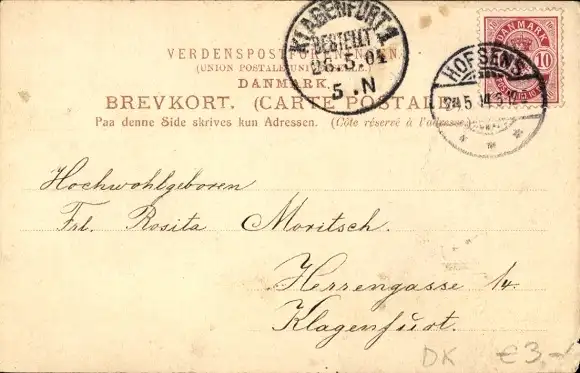 VERDENSPOSTFORENINGEN.
(UNION POSTALE UNIVERSELLE.)
DANMARK.
BREVKORT. (CARTE POSTALE.)
Paa denne Side skrives kun Adressen. (Côte réservé à l'adresse.)
KLAGENFURT 1
BESTELLT
26.5.04
5.N
DANMARK
10
HORSENS
24.5.04
Hochwohlgeboren
Frl. Rosita Moritsch.
Herrengasse 14.
Klagenfurt.
DK €3.-